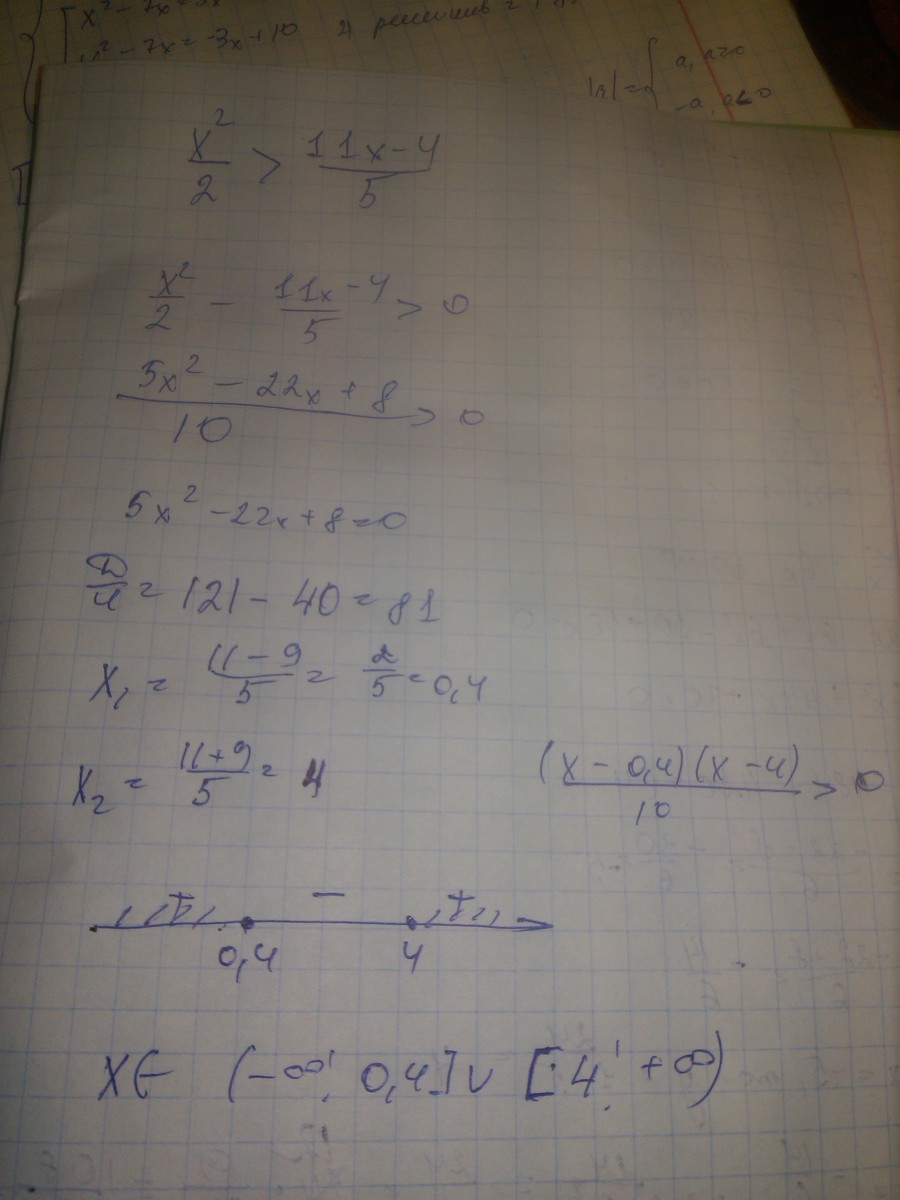 x² - 7x =
x² - 7x = -3x + 10 4 решения
|a| = { a, a≥0
-a, a<0
x²/2 > (11x-4)/5
x²/2 - (11x-4)/5 > 0
(5x² - 22x + 8)/10 > 0
5x² - 22x + 8 = 0
D/4 = 121 - 40 = 81
x₁ = (11-9)/5 = 2/5 = 0,4
x₂ = (11+9)/5 = 4
(x - 0,4)(x - 4)/10 > 0
+ - +
0,4 4
x ∈ (-∞; 0,4] ∪ [4; +∞)